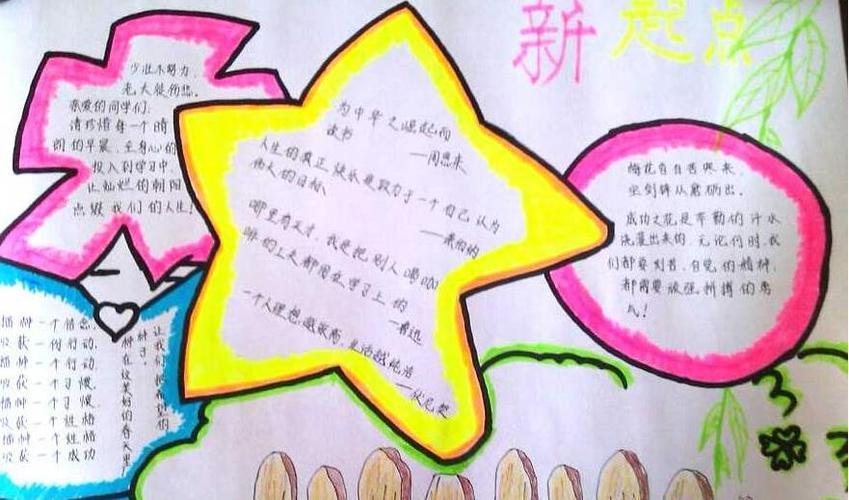 新起点
少壮不努力,
老大徒伤悲。
亲爱的同学们:
请珍惜每一个晴
朗的早晨,全身心的
投入到学习中,
让灿烂的朝阳
点缀我们的人生!
为中华之崛起而
读书
——周恩来
人生的真正快乐是致力于一个自己认为
伟大的目标。
——萧伯纳
哪里有天才,我是把别人喝咖
啡的工夫都用在学习上的
——鲁迅
一个人理想越崇高,生活越纯洁
——伏尼契
梅花香自苦寒来,
宝剑锋从磨砺出。
成功之花是辛勤的汗水
浇灌出来的,无论何时,我
们都要刻苦、自觉的精神,
都需要顽强拼搏的勇
气!
播种一个信念,
收获一份行动,
播种一个行动
收获一个习惯,
播种一个习惯,
收获一个性格
播种一个性格
收获一个成功
让我们把希望的
种子,
种在这美好的春天里